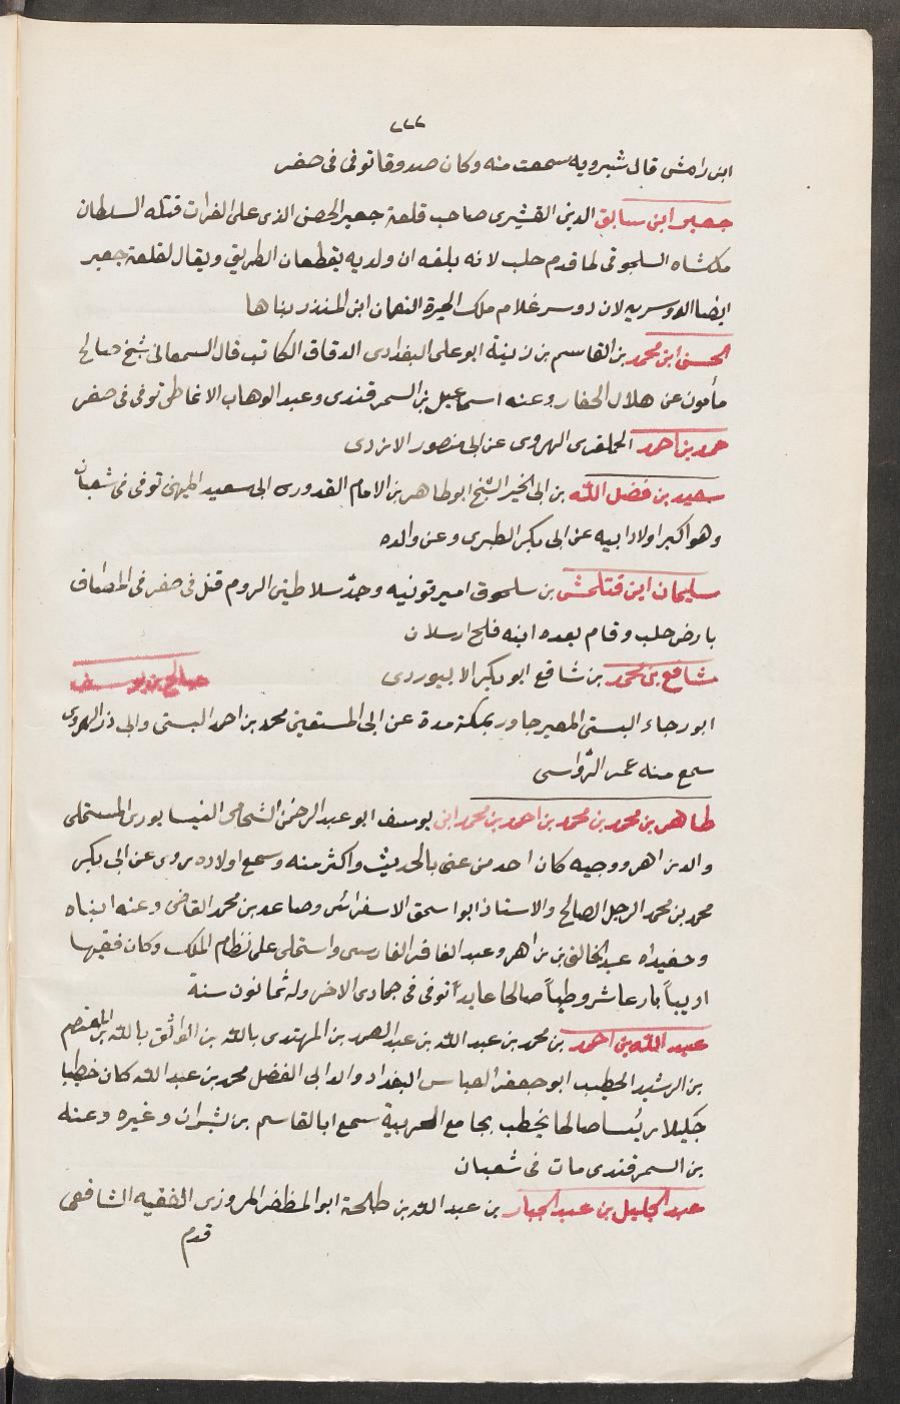 ٢٢٢
ابن رامش قال شيرويه سمعت منه وكان صدوقا توفى فى صفر
جعبر ابن سابق الدين القشيرى صاحب قلعة جعبر الحصن الذى على الفرات قتله السلطان
ملكشاه السلجوقى لما قدم حلب لانه بلغه ان ولديه يقطعان الطريق ويقال لقلعة جعبر
ايضا الدوسريه لان دوسر غلام ملك الحيرة النعمان ابن المنذر بناها
الحسن ابن محمد بن القاسم بن زينة ابو على البغدادى الدقاق الكاتب قال السمعانى شيخ صالح
مأمون عن هلال الحفار وعنه اسماعيل بن السمرقندى وعبد الوهاب الانماطى توفى فى صفر
حمد بن احمد الهروى عن ابى منصور الازدى
سعيد بن فضل الله بن ابى الخير الشيخ ابو طاهر بن الامام القدوره ابى سعيد الميهنى توفى فى شعبان
وهو اكبر اولاد ابيه عن ابى بكر الطبرى وعن والده
سليمان ابن قتلمش بن سلجوق امير قونيه وجدّ سلاطين الروم قتل فى صفر فى المصاف
بارض حلب وقام بعده ابنه قلج ارسلان
شافع بن محمد بن شافع ابو بكر الابيوردى صالح بن يوسف
ابو رجاء البستى المعبر جاور بمكة مدة عن ابى المستعين محمد بن احمد البستى وابى ذر الهروى
سمع منه عمر الرواسى
طاهر بن محمد بن محمد بن احمد بن محمد ابن يوسف ابو عبد الرحمن الشحامى النيسابورى المستملى
والد زاهر ووجيه كان احد من عنى بالحديث واكثر منه وسمع اولاده روى عن ابى بكر
محمد بن محمد الرجل الصالح والاستاذ ابو اسحق الاسفرائنى وصاعد بن محمد القاضى وعنه ابناه
وحفيداه عبد الخالق بن زاهر وعبد الغافر الفارسى واستملى على نظام الملك وكان فقيها
اديباً بارعا شروطياً صالحا عابداً توفى فى جمادى الاخر وله ثمانون سنة
عبد الله بن احمد بن محمد بن عبد الله بن عبد الصمد بن المهتدى بالله بن الواثق بالله بن المعتصم
بن الرشيد الخطيب ابو جعفر العباسى البغداد والد ابى الفضل محمد بن عبد الله كان خطيبا
جليلا رئيسا صالحا يخطب بجامع الحربية سمع ابا القاسم بن بشران وغيره وعنه
بن السمرقندى مات فى شعبان
عبد الجليل بن عبد الجبار بن عبد الله بن طلحة ابو المظفر المروزى الفقيه الشافعى
قدم